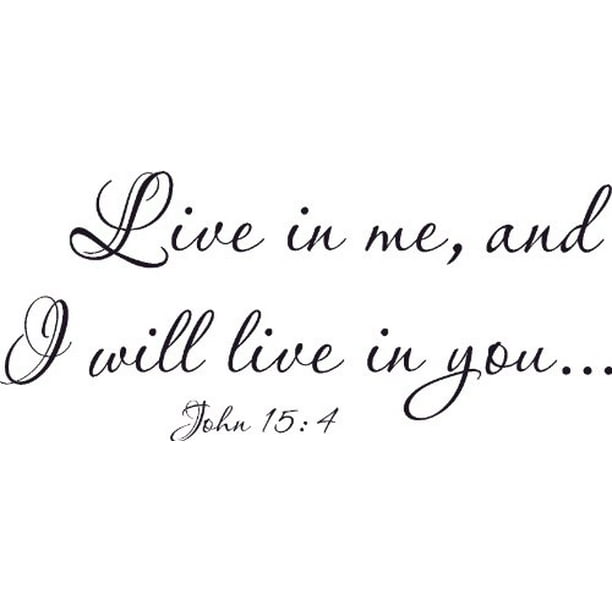 Live in me, and
I will live in you...
John 15:4